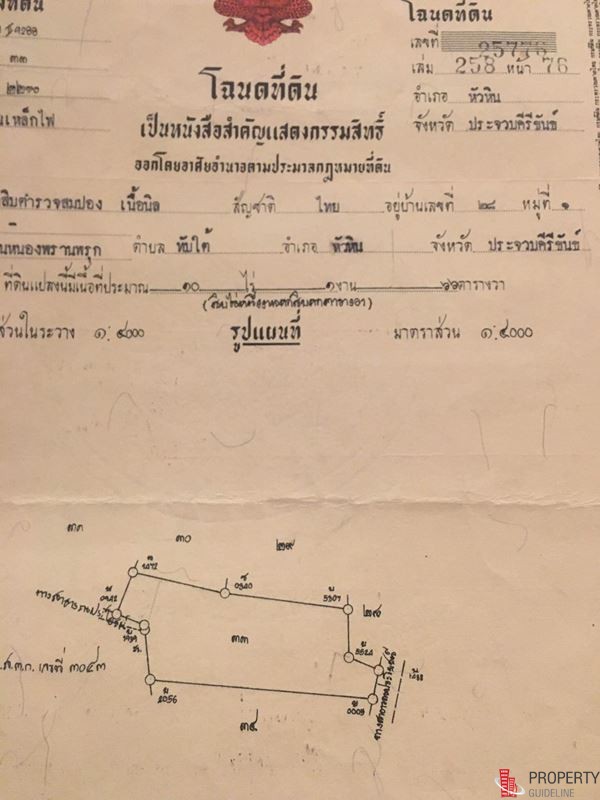 โฉนดที่ดิน
เลขที่ 25776
เล่ม 258 หน้า 76
อำเภอ หัวหิน
จังหวัด ประจวบคีรีขันธ์
๓๓
โฉนดที่ดิน
เป็นหนังสือสำคัญแสดงกรรมสิทธิ์
ออกโดยอาศัยอำนาจตามประมวลกฎหมายที่ดิน
สิบตำรวจสมปอง เนื้อนิล สัญชาติ ไทย อยู่บ้านเลขที่ ๒๘ หมู่ที่ ๑
หนองพรานพุก ตำบล ทับใต้ อำเภอ หัวหิน จังหวัด ประจวบคีรีขันธ์
ที่ดินแปลงนี้มีเนื้อที่ประมาณ ๑๐ ไร่ ๑ งาน ๖๖ ตารางวา
(สิบไร่หนึ่งงานหกสิบหกตารางวา)
ส่วนในระวาง ๑:๔๐๐๐ รูปแผนที่ มาตราส่วน ๑:๔๐๐๐
๓๑
๓๐
๒๙
๒๙
๓๓
๓๔
ส.ค.ก. เลขที่ ๓๐๕๓
ทางสาธารณประโยชน์
ทางสาธารณประโยชน์
PROPERTY
GUIDELINE